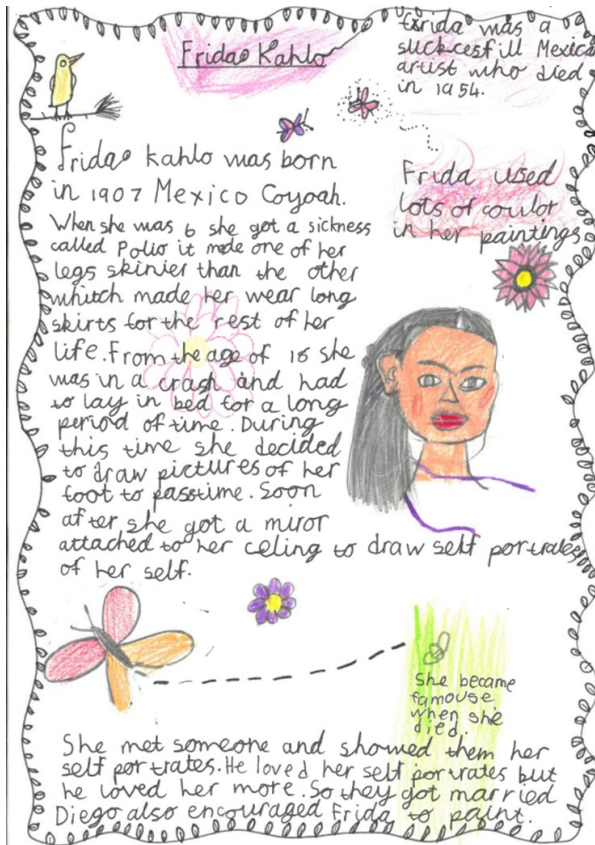 Frida Kahlo
Frida was a
suckcesfill Mexica
artist who died
in 1954.
Frida kahlo was born
in 1907 Mexico Coyoah.
When she was 6 she got a sickness
called Polio it made one of her
legs skinier than the other
whitch made her wear long
skirts for the rest of her
life. From the age of 18 she
was in a crash and had
to lay in bed for a long
period of time. During
this time she decided
to draw pictures of her
foot to passtime. Soon
after she got a miror
attached to her celing to draw self portrates
of her self.
Frida used
lots of coulor
in her paintings
She became
famouse
when she
died.
She met someone and showed them her
self portrates. He loved her self portrates but
he loved her more. So they got married
Diego also encouraged Frida to paint.